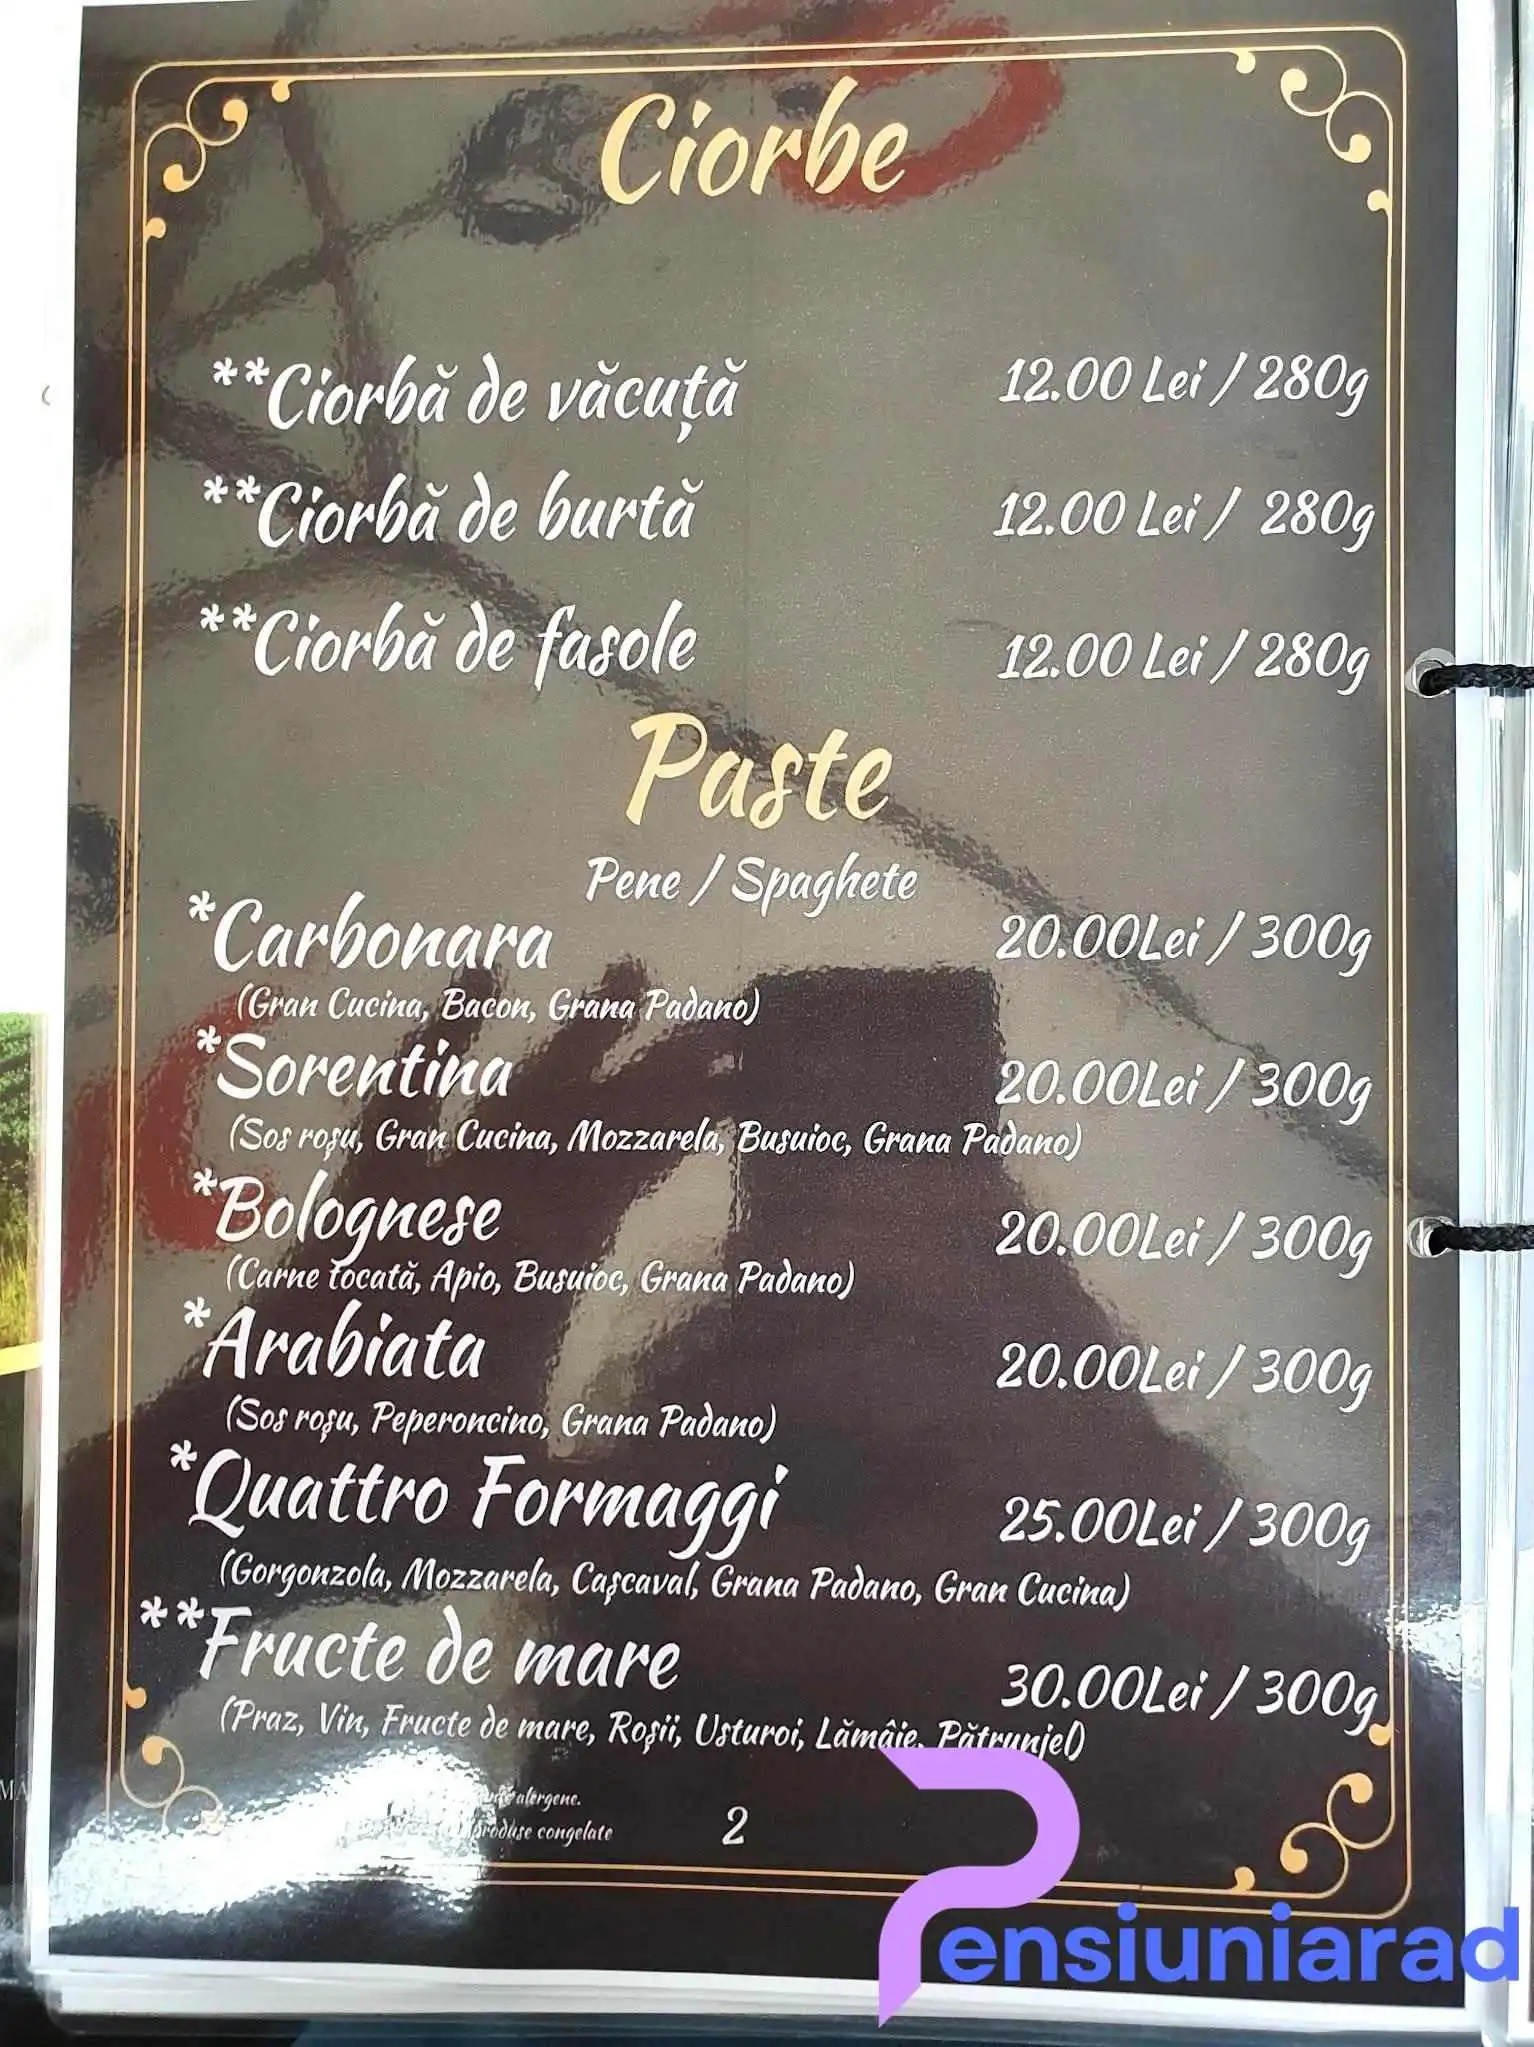 Ciorbe
**Ciorbă de văcuță 12.00 Lei / 280g
**Ciorbă de burtă 12.00 Lei / 280g
**Ciorbă de fasole 12.00 Lei / 280g
Paste
Pene / Spaghete
*Carbonara 20.00Lei / 300g
(Gran Cucina, Bacon, Grana Padano)
*Sorentina 20.00Lei / 300g
(Sos roșu, Gran Cucina, Mozzarela, Busuioc, Grana Padano)
*Bolognese 20.00Lei / 300g
(Carne tocată, Apio, Busuioc, Grana Padano)
*Arabiata 20.00Lei / 300g
(Sos roșu, Peperoncino, Grana Padano)
*Quattro Formaggi 25.00Lei / 300g
(Gorgonzola, Mozzarela, Cașcaval, Grana Padano, Gran Cucina)
**Fructe de mare 30.00Lei / 300g
(Praz, Vin, Fructe de mare, Roșii, Usturoi, Lămâie, Pătrunjel)
alergene.
produse congelate
2
Pensiuniarad